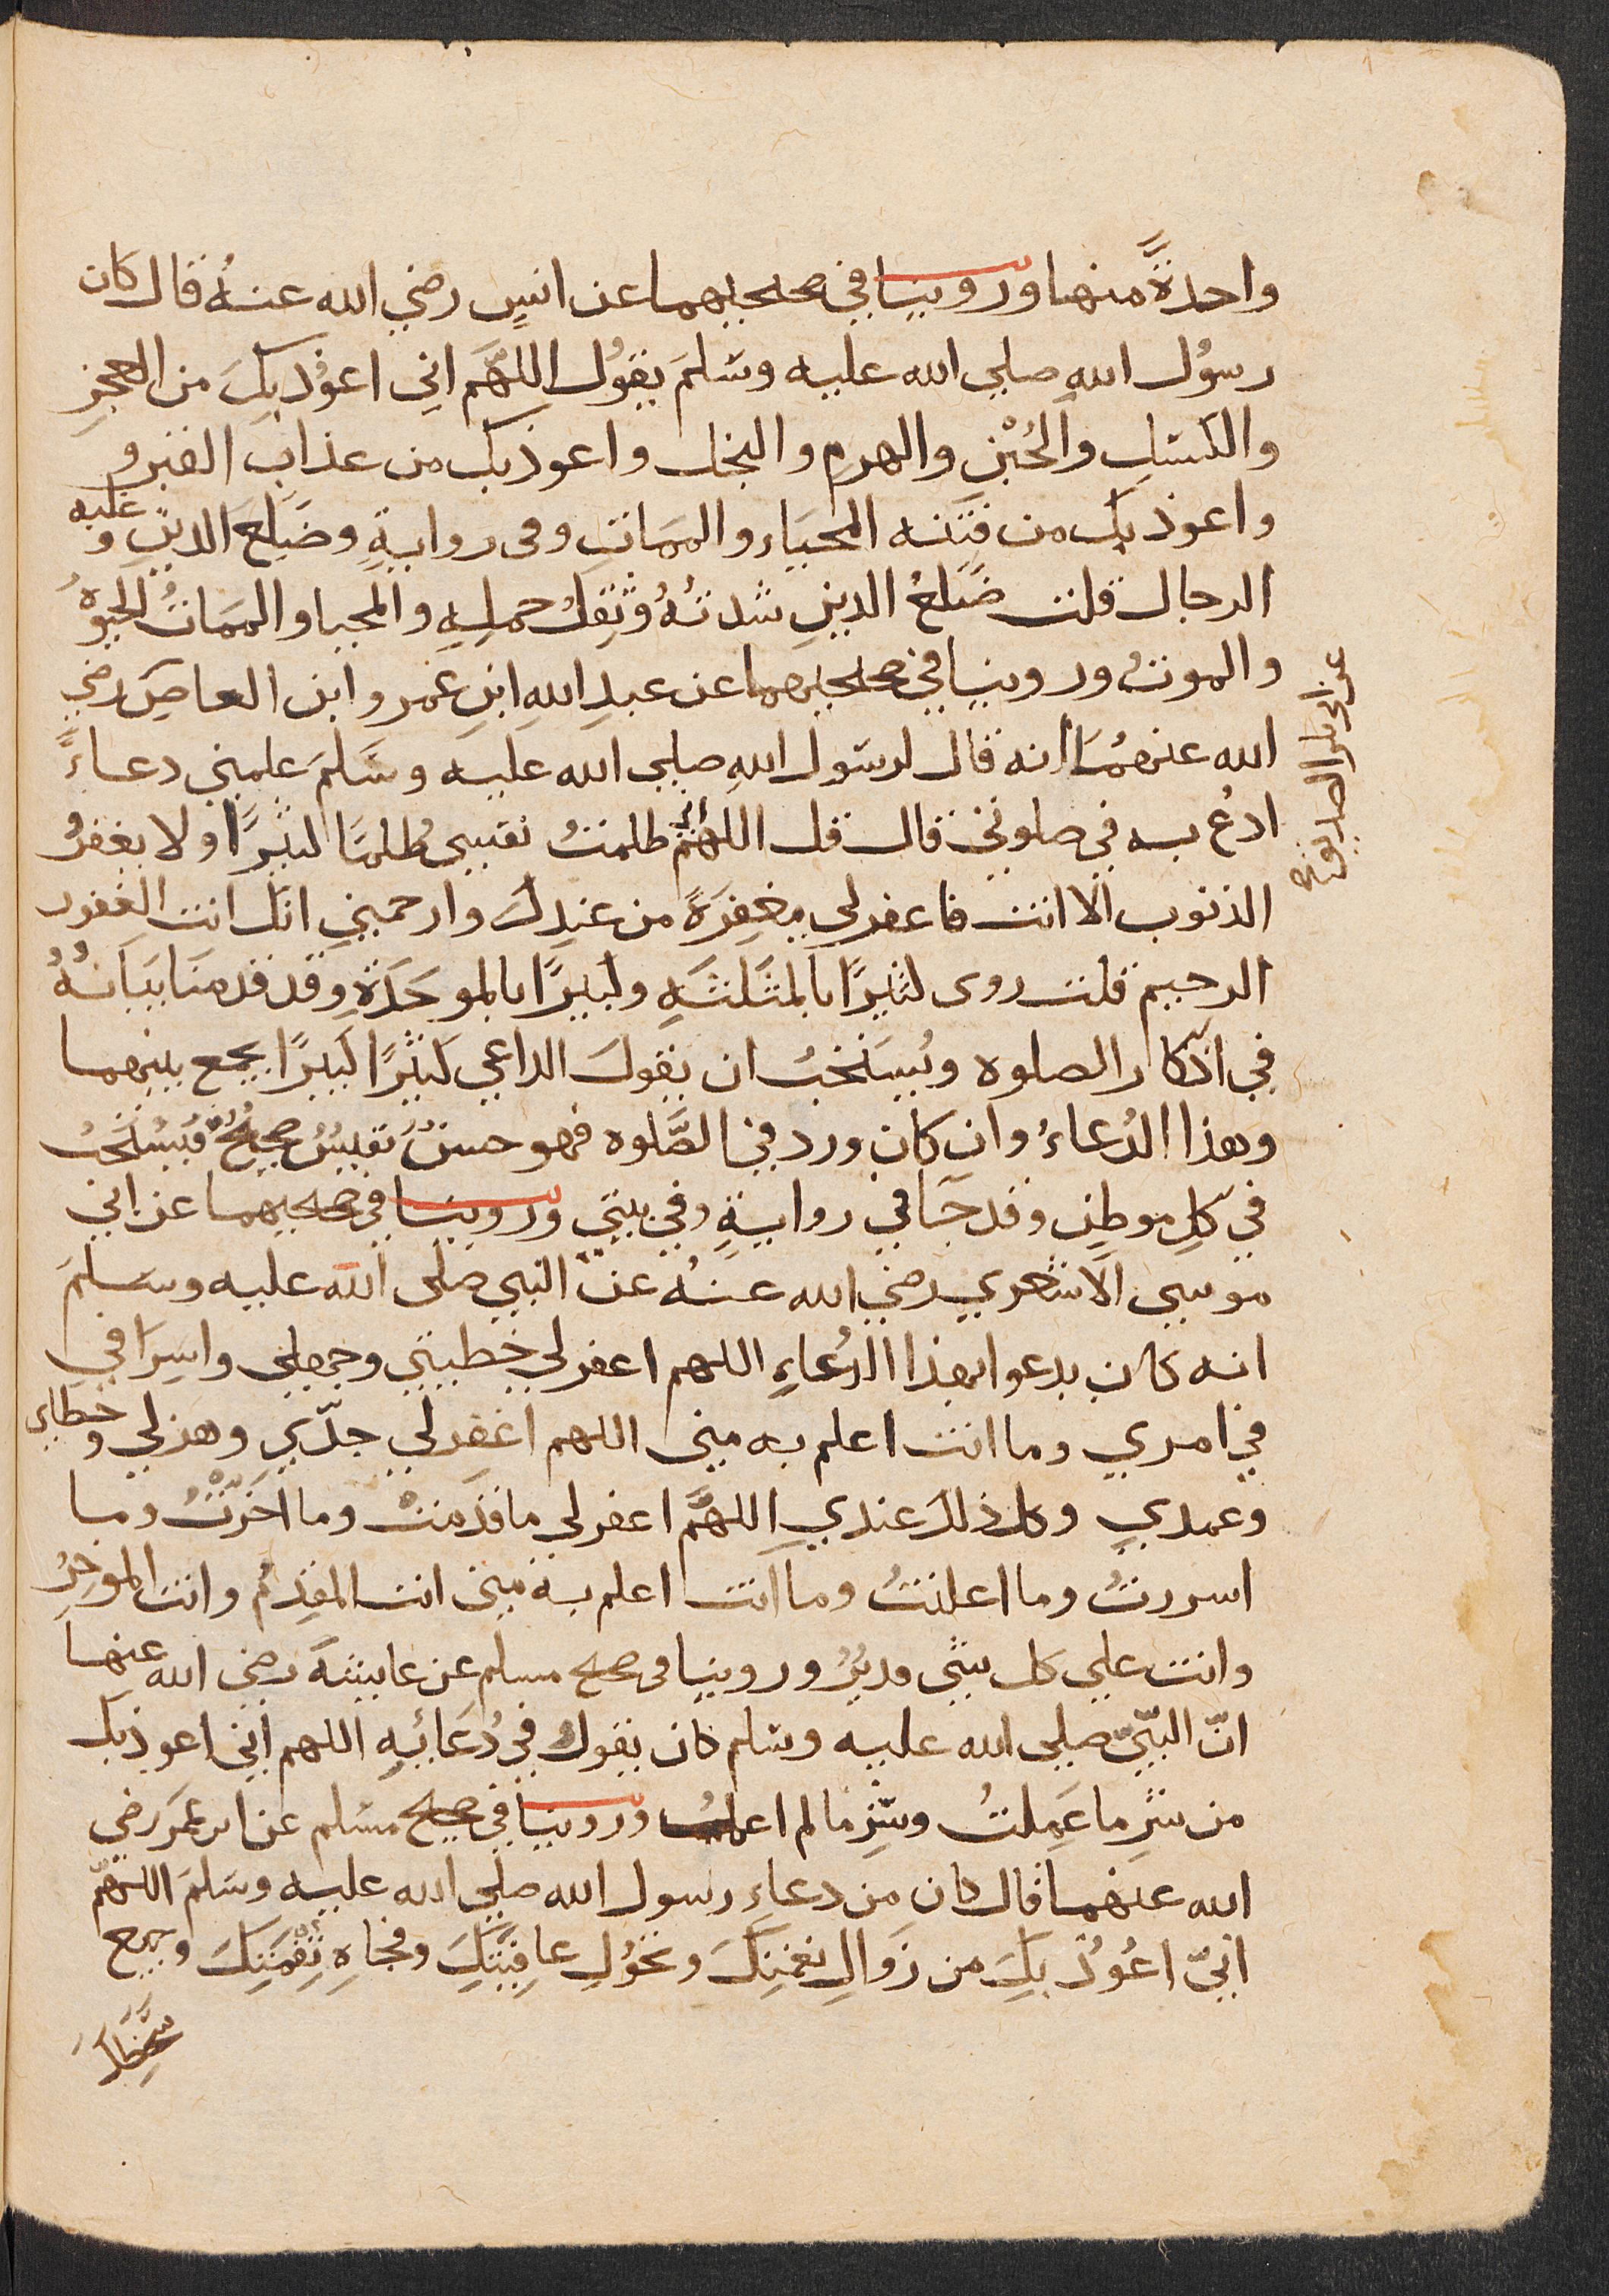 واحدةً منها وروينا في صحيحيهما عن انسٍ رضي الله عنهُ قال كان
رسوُل اللهِ صلي الله عليه وسَلمَ يقوُل اللهَّم اني اعوُذ بِكَ من العجزِ
والكسَلِ والجُبْنِ والهرمِ والبخل واعوذ بك من عذاب القبر و
واعوذ بك من فتنه المحيَاء والممَاتِ وفى روايةٍ وضَلَع الدينِ وغلبه
الرجال قلت ضَلعُ الدينِ شدتُهُ وثِقِلُ حملِهِ والمحيا والممَاتُ الحيوهُ
والموتُ وروينا في صحيحيهما عن عبدِ اللهِ ابنِ عَمرو ابن العاصِ رضي
الله عنهمُا
عن ابي بكر الصديق رضي الله عنه
انه قال لرسَول اللهِ صلي الله عليه وسَلمَ علمني دعاءً
ادعُ به في صلوتي قال قل اللهُم اني ظلمتُ نفسي ظلمًا كثيرًا ولا يغفرُ
الذنوب الا انت فاغفر لي مغفِرَةً من عندِكَ وارحمني انك انت الغفور
الرحيم قلت روى كثيرًا بالمثَلثَهِ وكبيرًا بالموحَدَةِ وقد قدمنَا بيَانَهُ
في اذكار الصلوه ويُستَحبُ ان يقولَ الداعي كثيرًا كبيرًا يجمع بينهما
وهذا الدُعاءُ وان كان ورد في الصَّلوه فهو حسنٌ نفيسٌ صحيحٌ فيُستَحبُ
في كلِ موطنٍ وقد جَا في روايةٍ وفي بيتي وروينا في صحيحيهما عن ابي
موسي الاشعري رضي الله عنهُ عن النبي صلى الله عليه وسلمَ
انه كان يدعوا بهذا الدُعاءِ اللهم اغفر لي خطيئتي وجهلي واسِرَافي
في امري وما انت اعلم به مني اللهم اغفر لي جدّي وهزلي وخطاي
وعمدي وكل ذلكَ عندي اللهَّم اغفر لي ما قدَمتُ وما اخَرّتُ وما
اسررتُ وما اعلنتُ وما انت اعلم به مني انت المقدِمُ وانت الموخِرُ
وانت علي كل شي قديرُ وروينا فى صحيح مسلم عن عايشهَ رضي الله عنها
انّ النبيّ صلي الله عليه وسَلم كان يقولُ في دُعَائِهِ اللهم اني اعوذ بك
من شرِ ما عَمِلتُ وشَرِ ما لم اعملُ وروينا في صحيح مسُلم عن ابن عمَر رضي
الله عنهما قال كان من دعاءِ رسول الله صلي الله عليه وسَلمَ اللهمّ
انيّ اعُوُذُ بِكَ من زَوَالِ نعمتِكَ وتحوُلِ عافِيَتِكَ وفجاهِ نِقمَتِكَ وجميع
سَخَطِكَ